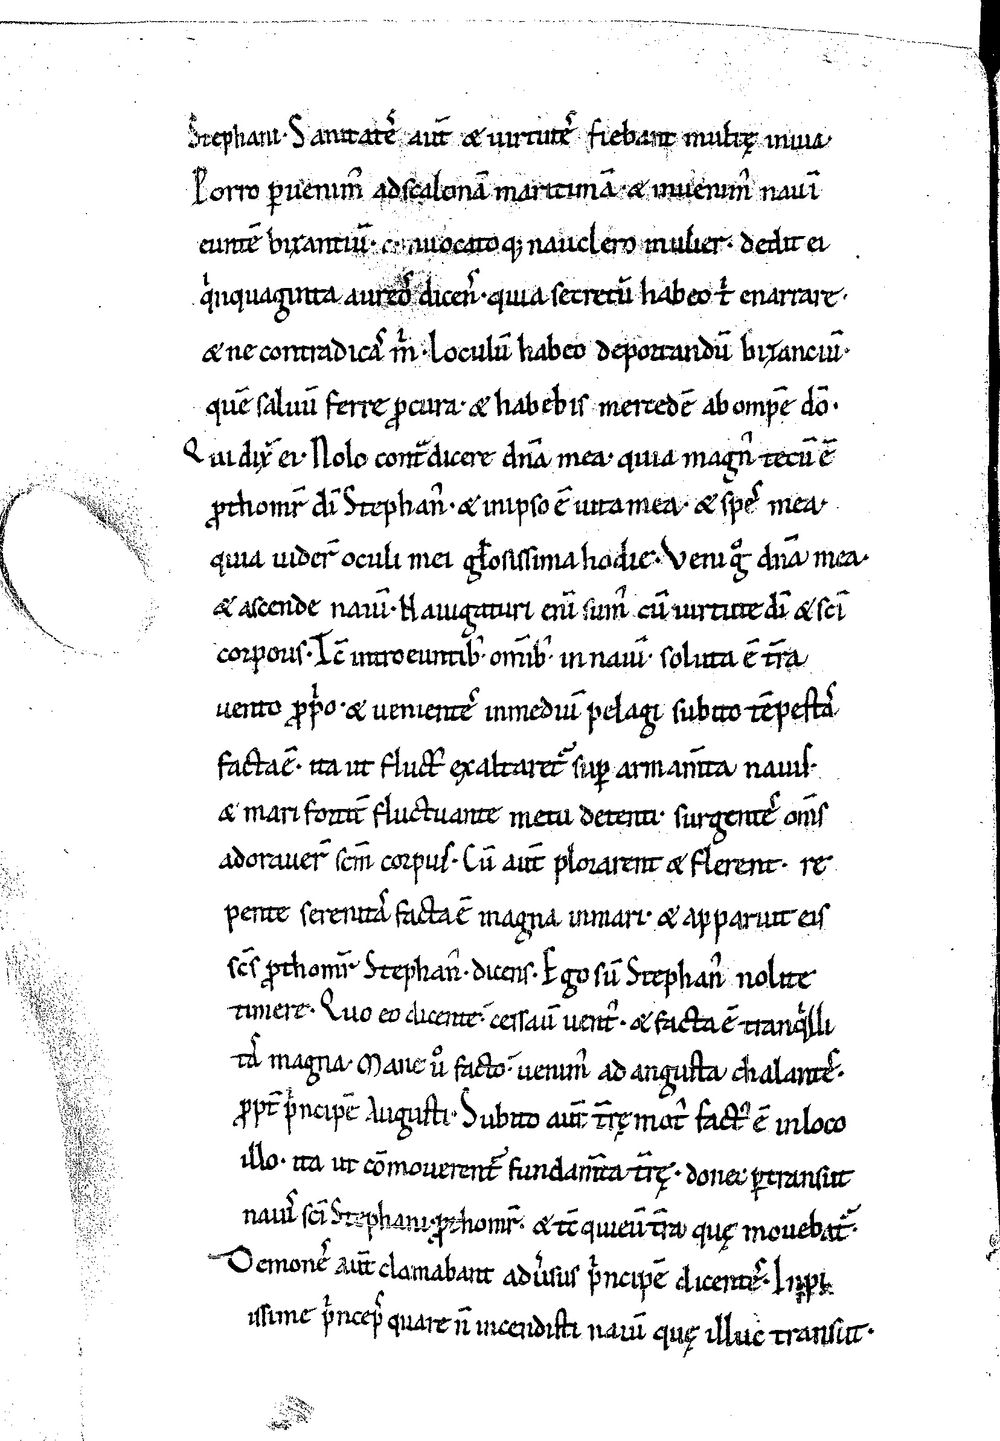 Stephani· Sanitatēs aut̄ & uirtutēs fiebant multę inuia·
Porro ꝑuenim̄ adscalonā maritimā· & inuenim̄ nauī
euntē bixantiū· conuocatoq; nauclero mulier· dedit ei
qͥnquaginta aureoˢ dicenˢ· quia secretū habeo tͥ enarrare·
& ne contradicaˢ mͥ· Loculū habeo deportandū bixanciū·
quē saluū ferre ꝓcura· & habebis mercedē ab omp̄e dō·
Qui dix̄ ei· Nolo contᵃdicere dn̄a mea· quia magn̄ tecū ē
ꝓthomr̄ dī Stephan̄· & inipso ē uita mea· & speˢ mea·
quia uider̄ oculi mei gl̄osissima hodie· Veni gͦ dn̄a mea·
& ascende nauī· Nauigaturi enī sum̄ cū uirtute dī & scī
corporis· Tc̄ introeuntib· om̄ib· in nauī· soluta ē tr̄ra
uento ꝓpͥo· & uenienteˢ inmediū pelagi subito tēpestaˢ
facta ē· ita ut fluct᾽ exaltaret᾽ suꝑ armam̄ta nauis·
& mari fortit̄ fluctuante metu detenti· surgenteˢ om̄s
adorauer̄ scm̄ corpus· Cū aut̄ plorarent & flerent· re
pente serenitaˢ facta ē magna inmari· & apparuit eis
sc̄s ꝓthomr̄ Stephan̄· dicens· Ego sū Stephan̄ nolite
timere· Quo eo dicente· cessauī uent᾽· & facta ē tranqͥlli
taˢ magna· Mane uͦ facto· uenim̄ ad angusta chalanteˢ·
ꝓpt̄ pͥncipē Augusti· Subito aut̄ tr̄ę mot᾽ fact᾽ ē inloco
illo· ita ut cōmouerent᾽ fundam̄ta tr̄ę· donec ꝑtransiit
nauiˢ scī Stephani ꝓthomr̄· & tc̄ quieuī tr̄ra quę mouebat᾽·
Demoneˢ aut̄ clamabant adu᾽sus pͥncipē dicenteˢ· Inpi
issime pͥncepˢ quare n̄ incendisti nauī quę illuc transiit·